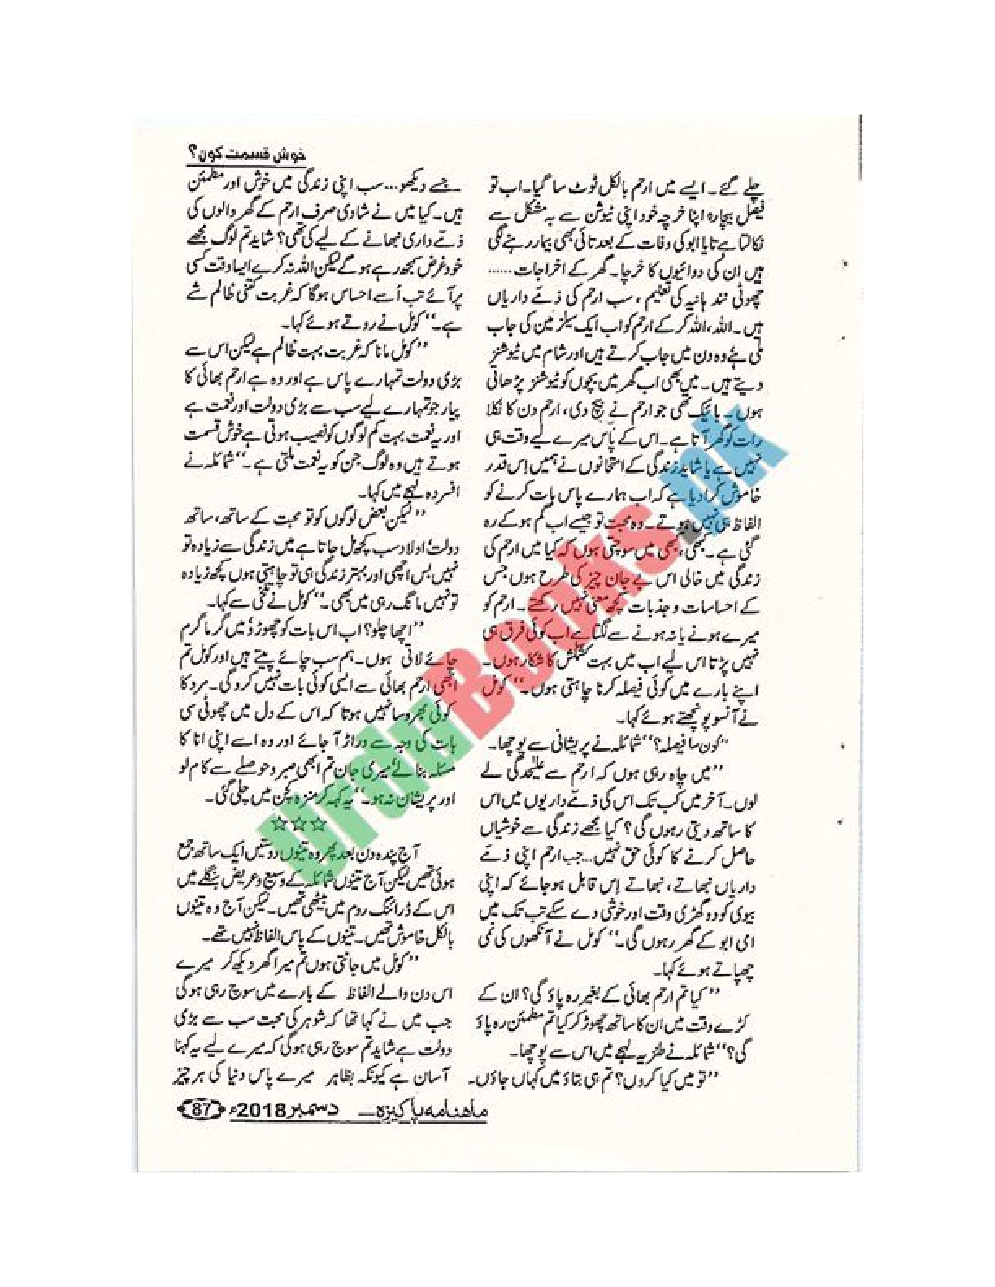 خوش قسمت کون؟
چلے گئے۔ ایسے میں ارحم بالکل ٹوٹ سا گیا۔ اب تو
فیصل بیچارہ اپنا خرچہ خود اپنی ٹیوشن سے بہ مشکل سے
نکالتا ہے تایا ابو کی وفات کے بعد تائی بھی بیمار رہنے لگی
ہیں ان کی دوائیوں کا خرچا۔ گھر کے اخراجات ......
چھوٹی نند ہانیہ کی تعلیم، سب ارحم کی ذمے داریاں
ہیں۔ اللہ، اللہ کر کے ارحم کو اب ایک سیلز مین کی جاب
ملی ہے وہ دن میں جاب کرتے ہیں اور شام میں ٹیوشنز
دیتے ہیں۔ میں بھی اب گھر میں بچوں کو ٹیوشنز پڑھاتی
ہوں۔ بائیک تھی جو ارحم نے بیچ دی، ارحم دن کا نکلا
رات کو گھر آتا ہے۔ اس کے پاس میرے لیے وقت ہی
نہیں ہے یا شاید زندگی کے امتحانوں نے ہمیں اس قدر
خاموش کرا دیا ہے کہ اب ہمارے پاس بات کرنے کو
الفاظ ہی نہیں ہوتے۔ وہ محبت تو جیسے اب گم ہو کے رہ
گئی ہے۔ کبھی، کبھی میں سوچتی ہوں کہ کیا میں ارحم کی
زندگی میں خالی اس بے جان چیز کی طرح ہوں جس
کے احساسات و جذبات کچھ معنی نہیں رکھتے۔ ارحم کو
میرے ہونے یا نہ ہونے سے لگتا ہے اب کوئی فرق ہی
نہیں پڑتا اس لیے اب میں بہت کشمکش کا شکار ہوں۔
اپنے بارے میں کوئی فیصلہ کرنا چاہتی ہوں۔“ کومل
نے آنسو پونچھتے ہوئے کہا۔
”کون سا فیصلہ؟“ شمائلہ نے پریشانی سے پوچھا۔
”میں چاہ رہی ہوں کہ ارحم سے علیٰحدگی لے
لوں۔ آخر میں کب تک اس کی ذمے داریوں میں اس
کا ساتھ دیتی رہوں گی؟ کیا مجھے زندگی سے خوشیاں
حاصل کرنے کا کوئی حق نہیں... جب ارحم اپنی ذمے
داریاں نبھاتے، نبھاتے اس قابل ہو جائے کہ اپنی
بیوی کو دو گھڑی وقت اور خوشی دے سکے تب تک میں
امی ابو کے گھر رہوں گی۔“ کومل نے آنکھوں کی نمی
چھپاتے ہوئے کہا۔
”کیا تم ارحم بھائی کے بغیر رہ پاؤ گی؟ ان کے
کڑے وقت میں ان کا ساتھ چھوڑ کر کیا تم مطمئن رہ پاؤ
گی؟“ شمائلہ نے طنزیہ لہجے میں اس سے پوچھا۔
”تو میں کیا کروں؟ تم ہی بتاؤ میں کہاں جاؤں۔
جسے دیکھو... سب اپنی زندگی میں خوش اور مطمئن
ہیں۔ کیا میں نے شادی صرف ارحم کے گھر والوں کی
ذمے داری نبھانے کے لیے کی تھی؟ شاید تم لوگ مجھے
خود غرض سمجھ رہے ہو گے لیکن اللہ نہ کرے ایسا وقت کسی
پر آئے تب اُسے احساس ہوگا کہ غربت کتنی ظالم شے
ہے۔“ کومل نے روتے ہوئے کہا۔
”کومل مانا کہ غربت بہت ظالم ہے لیکن اس سے
بڑی دولت تمہارے پاس ہے اور وہ ہے ارحم بھائی کا
پیار جو تمہارے لیے سب سے بڑی دولت اور نعمت ہے
اور یہ نعمت بہت کم لوگوں کو نصیب ہوتی ہے خوش قسمت
ہوتے ہیں وہ لوگ جن کو یہ نعمت ملتی ہے۔“ شمائلہ نے
افسردہ لہجے میں کہا۔
”لیکن بعض لوگوں کو تو محبت کے ساتھ، ساتھ
دولت، اولاد سب کچھ مل جاتا ہے میں زندگی سے زیادہ تو
نہیں بس اچھی اور بہتر زندگی ہی تو چاہتی ہوں کچھ زیادہ
تو نہیں مانگ رہی میں بھی۔“ کومل نے تلخی سے کہا۔
”اچھا چلو؟ اب اس بات کو چھوڑو میں گرما گرم
چائے لاتی ہوں۔ ہم سب چائے پیتے ہیں اور کومل تم
ابھی ارحم بھائی سے ایسی کوئی بات نہیں کرو گی۔ مرد کا
کوئی بھروسا نہیں ہوتا کہ اس کے دل میں چھوٹی سی
بات کی وجہ سے دراڑ آ جائے اور وہ اسے اپنی انا کا
مسئلہ بنا لے میری جان تم ابھی صبر و حوصلے سے کام لو
اور پریشان نہ ہو۔“ یہ کہہ کر منزہ کچن میں چلی گئی۔
☆☆☆
آج پندرہ دن بعد پھر وہ تینوں دوستیں ایک ساتھ جمع
ہوئی تھیں لیکن آج تینوں شمائلہ کے وسیع و عریض بنگلے میں
اس کے ڈرائنگ روم میں بیٹھی تھیں۔ لیکن آج وہ تینوں
بالکل خاموش تھیں۔ تینوں کے پاس الفاظ نہیں تھے۔
”کومل میں جانتی ہوں تم میرا گھر دیکھ کر میرے
اس دن والے الفاظ کے بارے میں سوچ رہی ہو گی
جب میں نے کہا تھا کہ شوہر کی محبت سب سے بڑی
دولت ہے شاید تم سوچ رہی ہو گی کہ میرے لیے یہ کہنا
آسان ہے کیونکہ بظاہر میرے پاس دنیا کی ہر چیز
ماہنامہ پاکیزہ __ دسمبر 2018ء 87
UrduBooks.pk